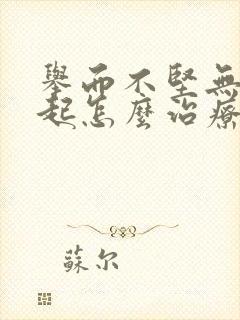 舉而不堅無
起怎麼治療
蘇尔